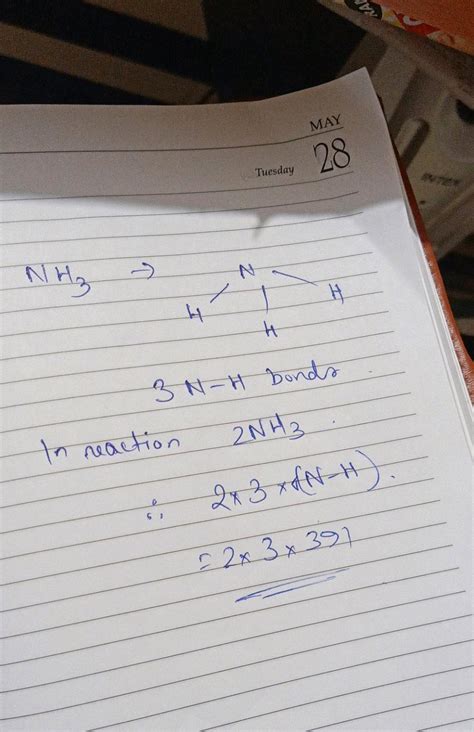 MAY
Tuesday 28
NH3 → N
H H
H
3 N-H bonds.
In reaction 2NH3.
∴ 2×3×(N-H).
= 2×3×391